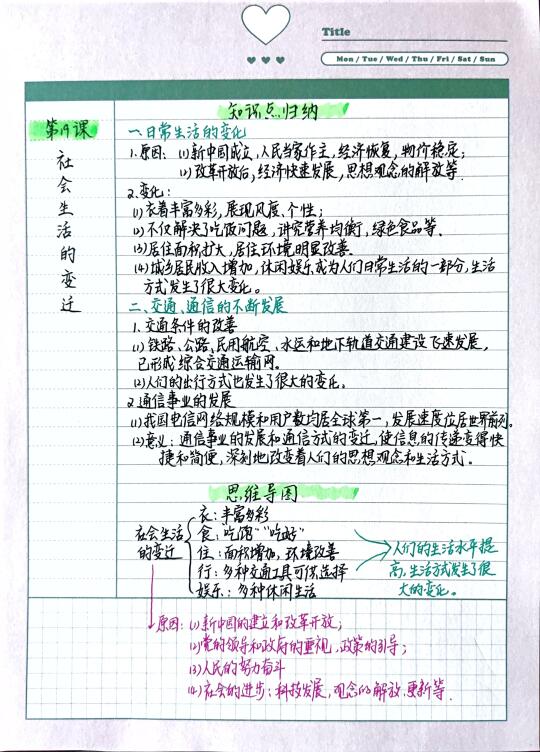 Title
Mon / Tue / Wed / Thu / Fri / Sat / Sun
知识点归纳
第19课
社会生活的变迁
一、日常生活的变化
1.原因：(1)新中国成立，人民当家作主，经济恢复，物价稳定；
(2)改革开放后，经济快速发展，思想观念的解放等.
2.变化：
(1)衣着丰富多彩，展现风度、个性；
(2)不仅解决了吃饭问题，讲究营养均衡，绿色食品等.
(3)居住面积扩大，居住环境明显改善.
(4)城乡居民收入增加，休闲娱乐成为人们日常生活的一部分，生活
方式发生了很大变化。
二、交通、通信的不断发展
1.交通条件的改善
(1)铁路、公路、民用航空、水运和地下轨道交通建设飞速发展，
已形成综合交通运输网。
(2)人们的出行方式也发生了很大的变化。
2.通信事业的发展
(1)我国电信网络规模和用户数均居全球第一，发展速度位居世界前列。
(2)意义：通信事业的发展和通信方式的变迁，使信息的传递变得快
捷和简便，深刻地改变着人们的思想观念和生活方式.
思维导图
社会生活
的变迁
衣：丰富多彩
食："吃饱""吃好"
住：面积增加，环境改善
行：多种交通工具可供选择
娱乐：多种休闲生活
人们的生活水平提
高，生活方式发生了很
大的变化。
原因：(1)新中国的建立和改革开放；
(2)党的领导和政府的重视，政策的引导；
(3)人民的努力奋斗
(4)社会的进步：科技发展，观念的解放、更新等.